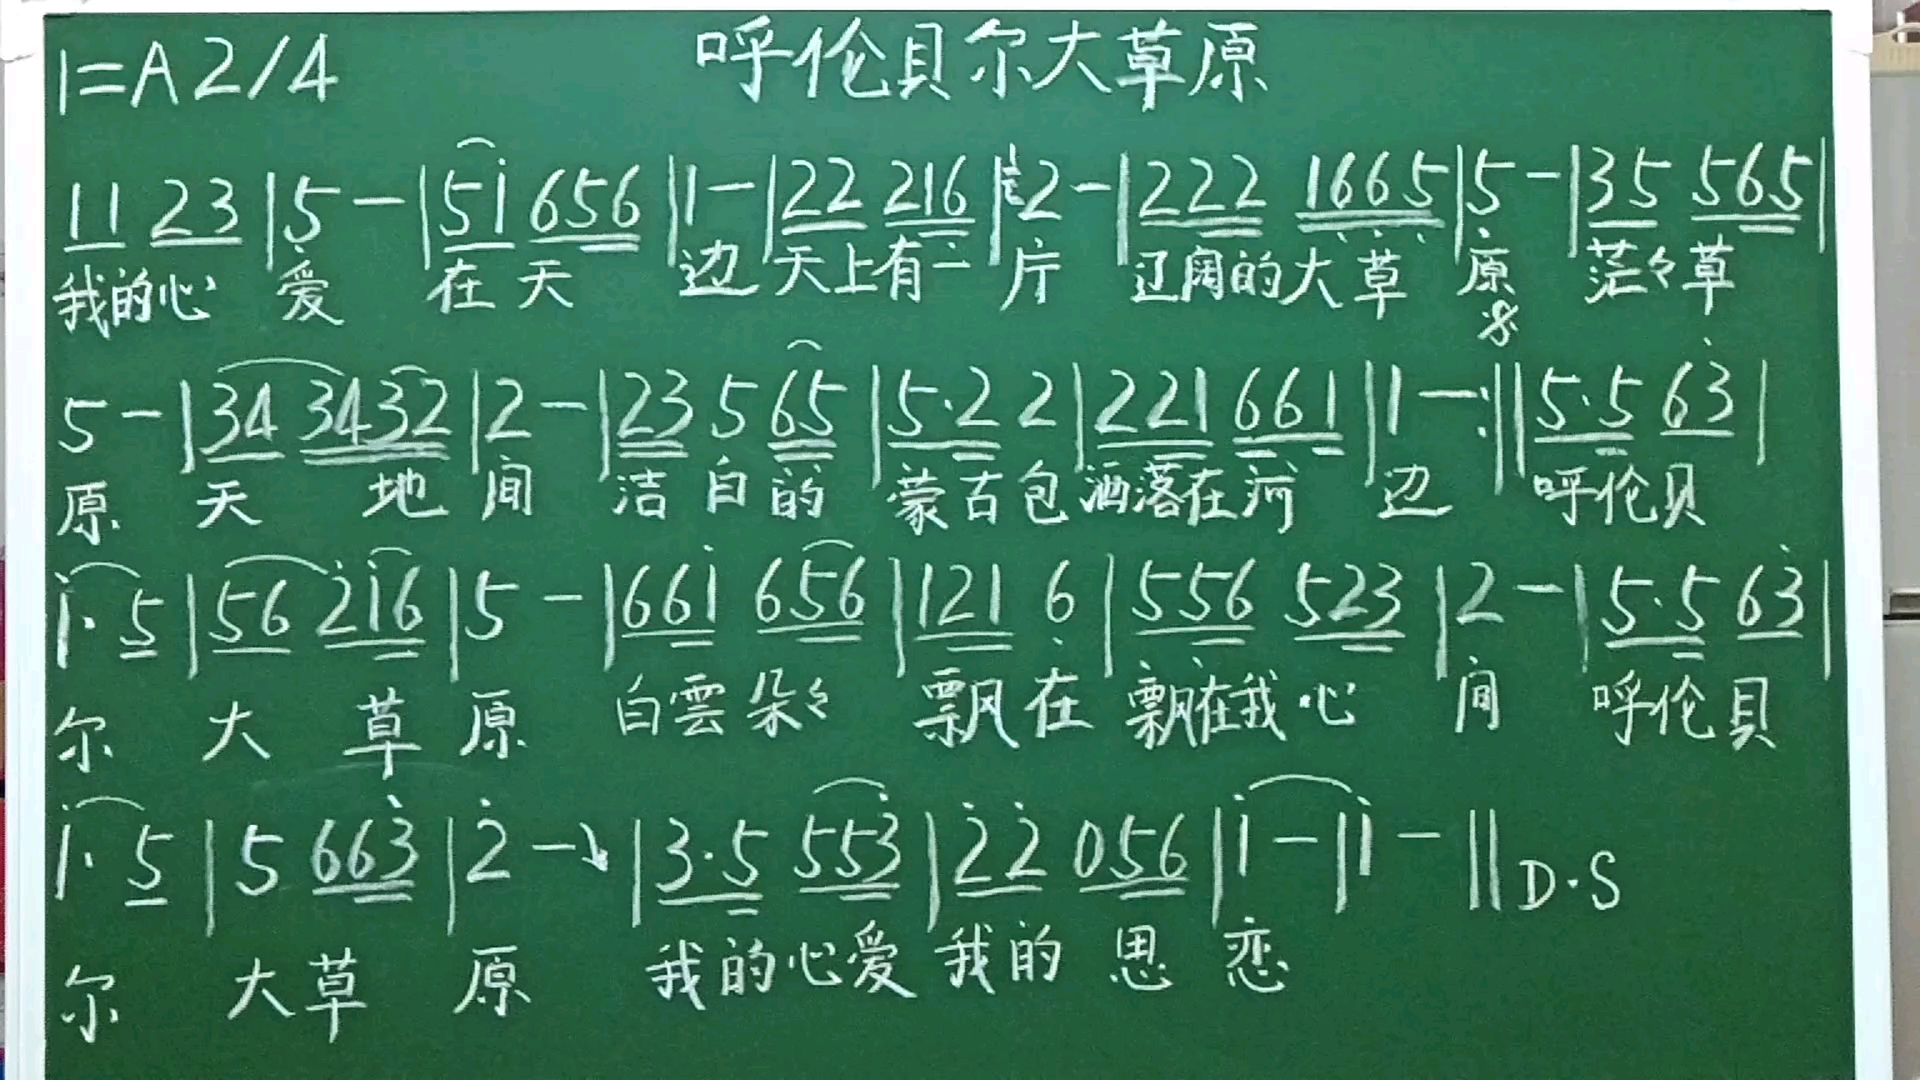 1=A 2/4 呼伦贝尔大草原
11 23 | 5 - | 5i 656 | 1 - | 22 216 | 2 - | 222 1665 | 5 - | 35 565 |
我的心 爱 在 天 边 天上有一 片 辽阔的大草 原 茫々草
5 - | 34 3432 | 2 - | 23 5 65 | 5·2 2 | 221 661 | 1 - :|| 5·5 63 |
原 天 地 间 洁 白 的 蒙古包 洒落在河 边 呼伦贝
i· 5 | 56 2i6 | 5 - | 66i 656 | 121 6 | 556 523 | 2 - | 5·5 63 |
尔 大 草 原 白雲朵々 飘 在 飘在我心 间 呼伦贝
i· 5 | 5 663 | 2 - | 3·5 553 | 22 056 | i - | i - || D·S
尔 大草 原 我的心爱 我的 思 恋